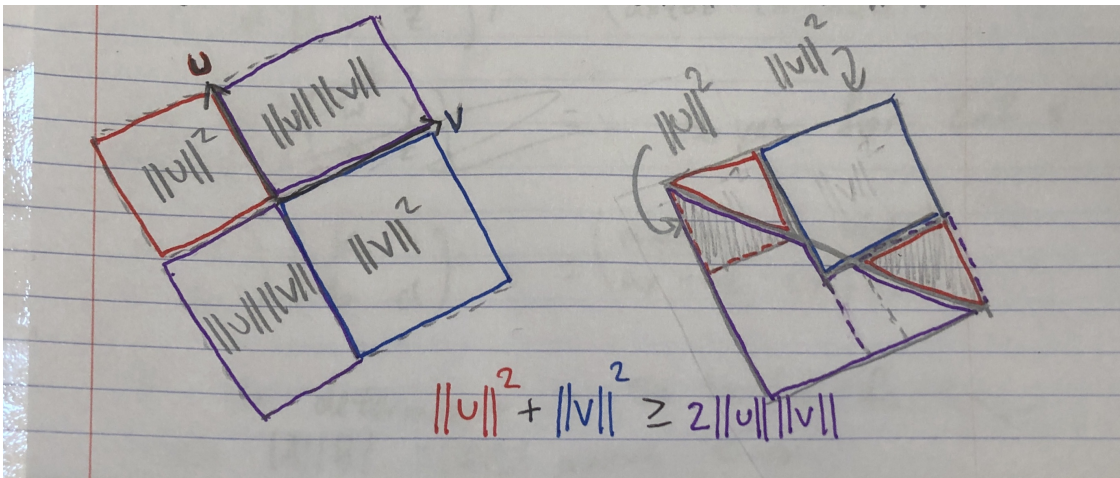 U
||u||||v||
V
||u||²
||v||²
||u||||v||
||u||²
||v||²
||u||² + ||v||² ≥ 2||u||||v||